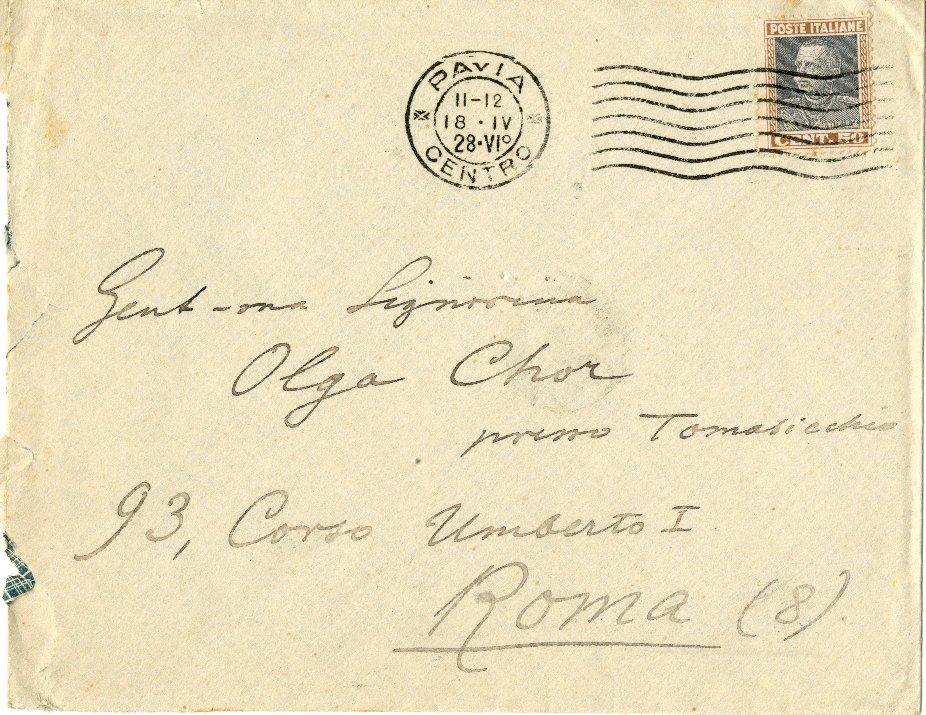 POSTE ITALIANE
CENT. 50
PAVIA
11-12
18 · IV
28 · VI°
CENTRO
Gent-ma Signorina
Olga Chor
presso Tomasicchio
93, Corso Umberto I
Roma (8).